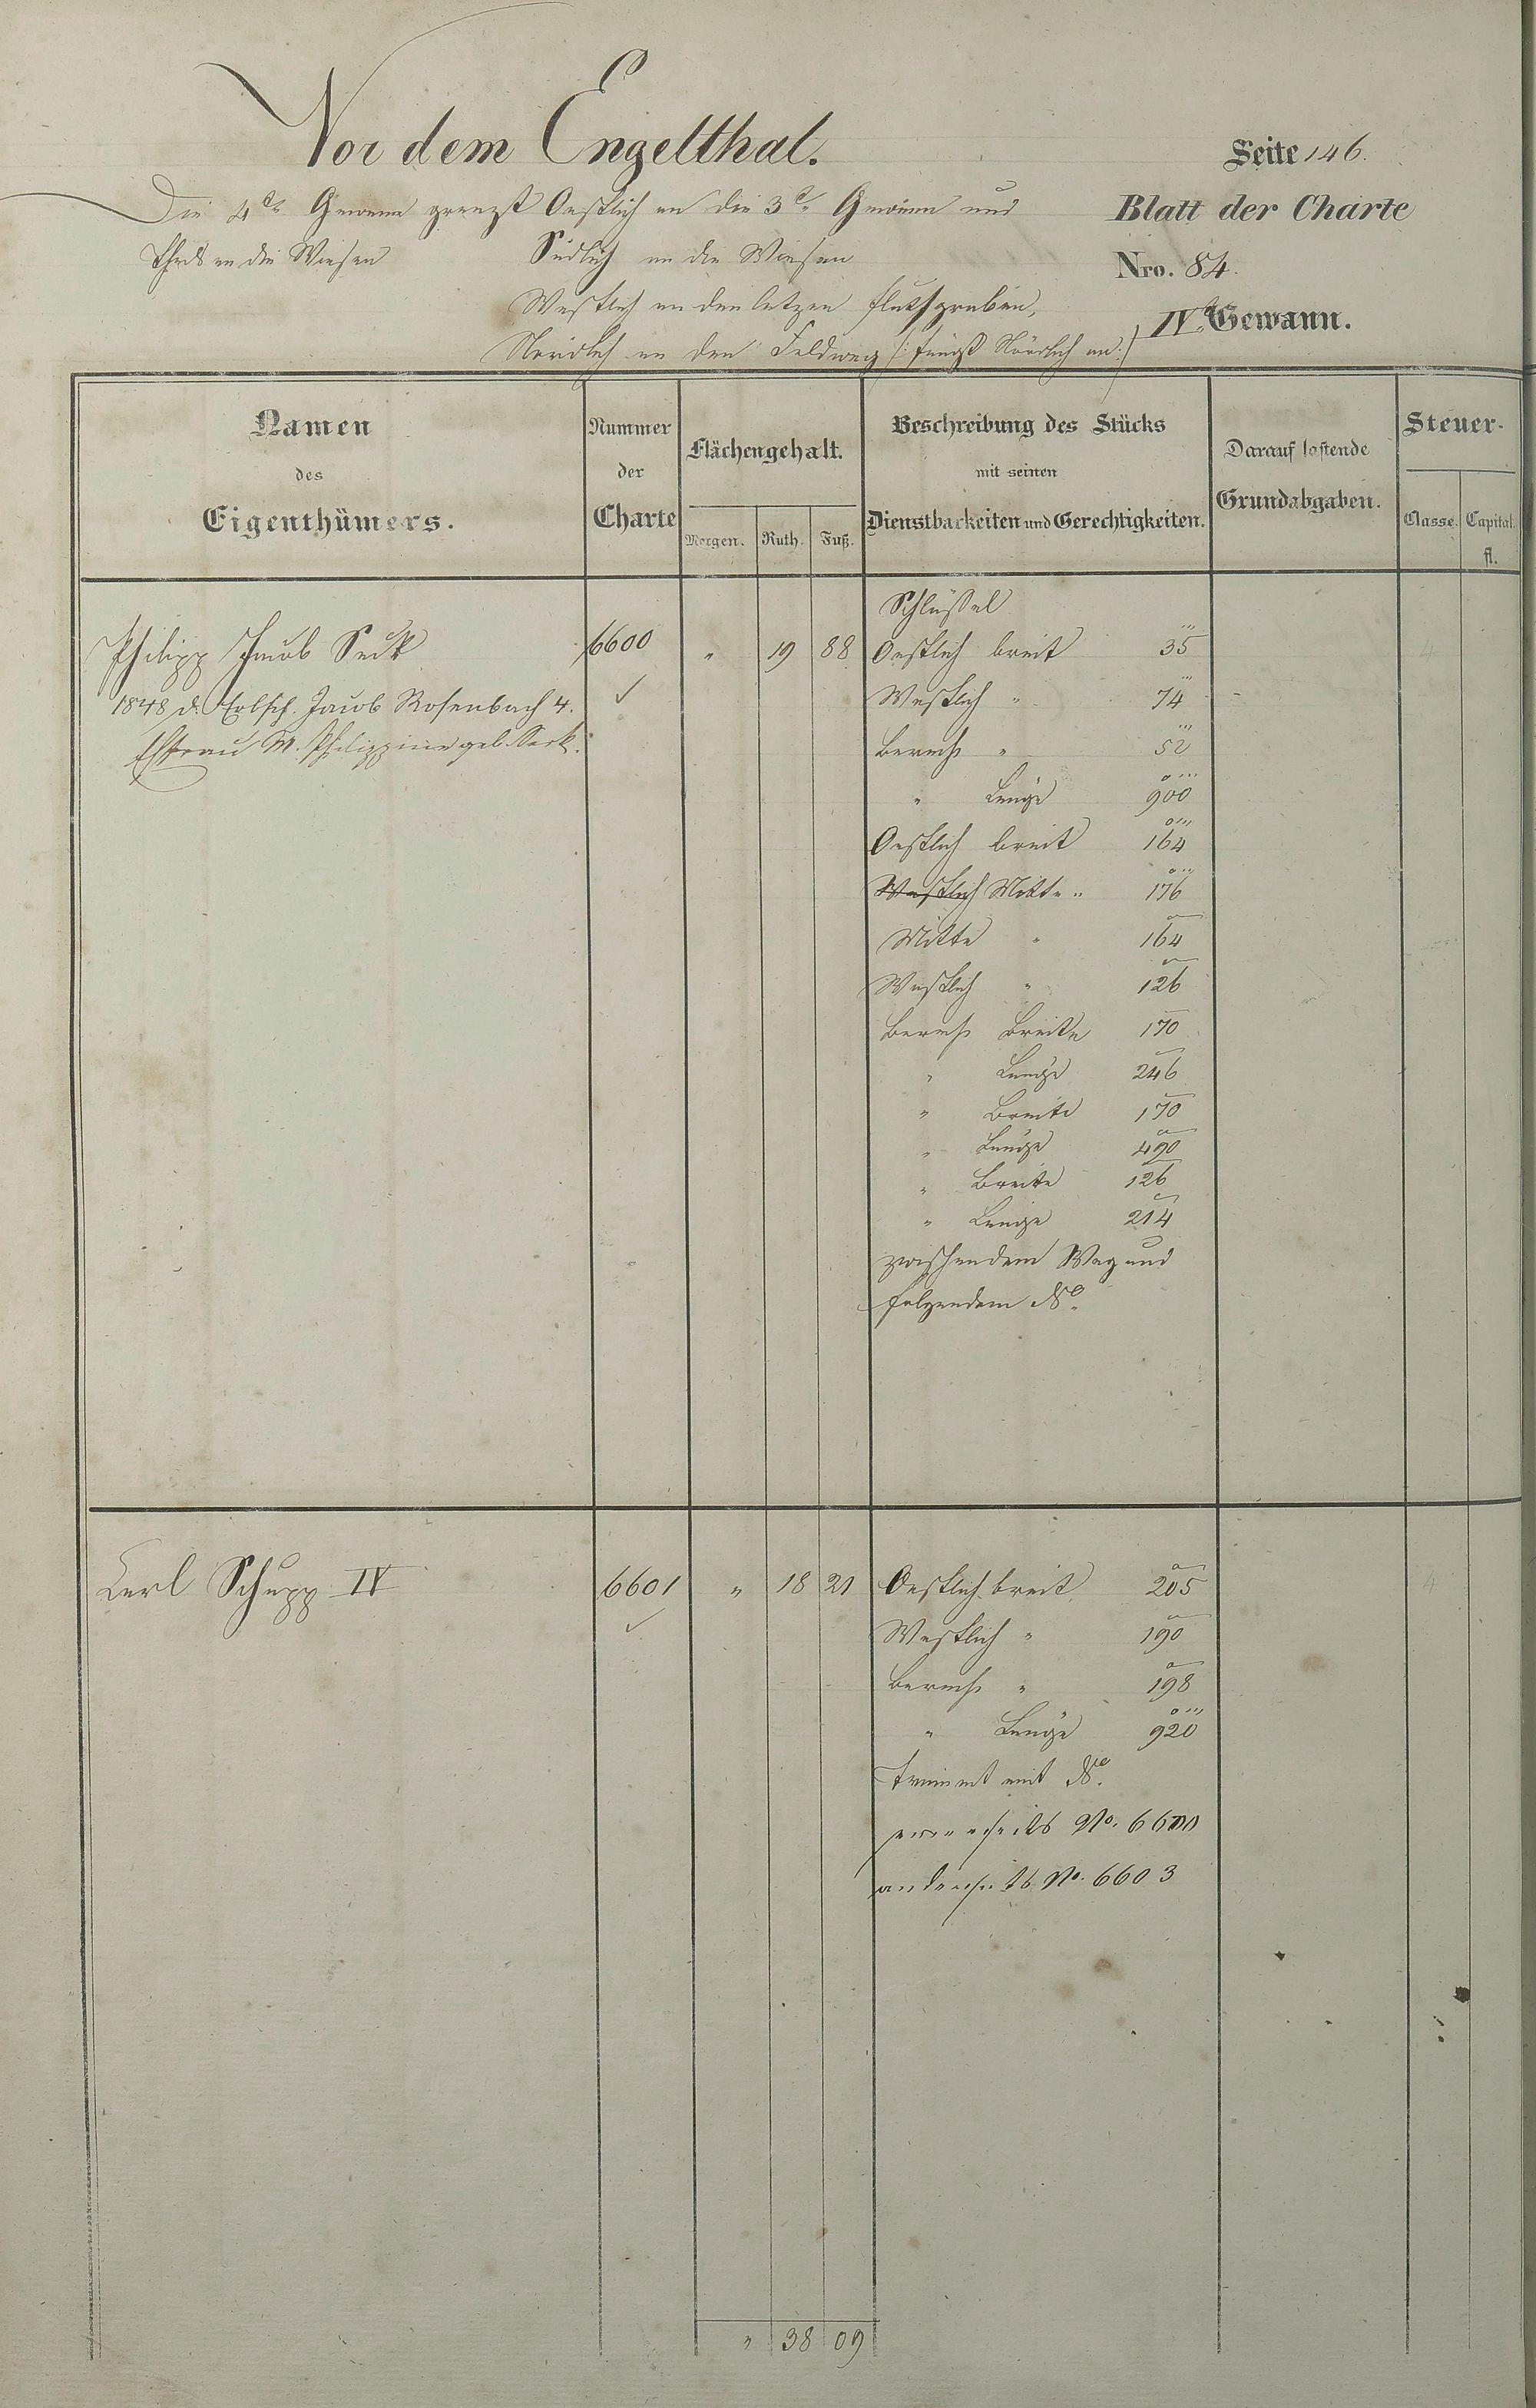 Vor dem Engelthal.
Seite 146.
Die 4te Gewann grenzt Oestlich an die 3te Gewann und
Blatt der Charte
Theils an die Wiesen Südlich an die Wiesen
Nro. 84.
Westlich an den letzen fluthgraben,
IVte Gewann.
Nördlich an den Feldweg /: fängt Nördlich an :/
Namen des Eigenthümers.
Nummer der Charte
Flächengehalt.
Morgen. Ruth. Fuß.
Beschreibung des Stücks mit seinen Dienstbarkeiten und Gerechtigkeiten.
Darauf lastende Grundabgaben.
Steuer-
Classe. Capital. fl.
Schlüssel
Philipp Jacob Seck 6600 " 19 88 Oestlich breit 35''' 4
1848 d. Erbsch. Jacob Rosenbach 4. ✓ Westlich " 74'''
Ehfrau M. Philippine geb. Seck. Berech. " 52'''
" Länge 900
Oestlich breit 164
Westlich Mitte " 176
Mitte " 164
Westlich " 126
Berech. Breite 170
" Länge 246
" Breite 170
" Länge 490
" Breite 126
" Länge 214
zwischen dem Weg und
folgendem No.
Carl Schupp IV 6601 " 18 21 Oestlich breit 205 4
✓ Westlich " 190
Berech. " 198
" Länge 920
mit No.
einerseits No. 6600
anderseits No. 6603
" 38 09